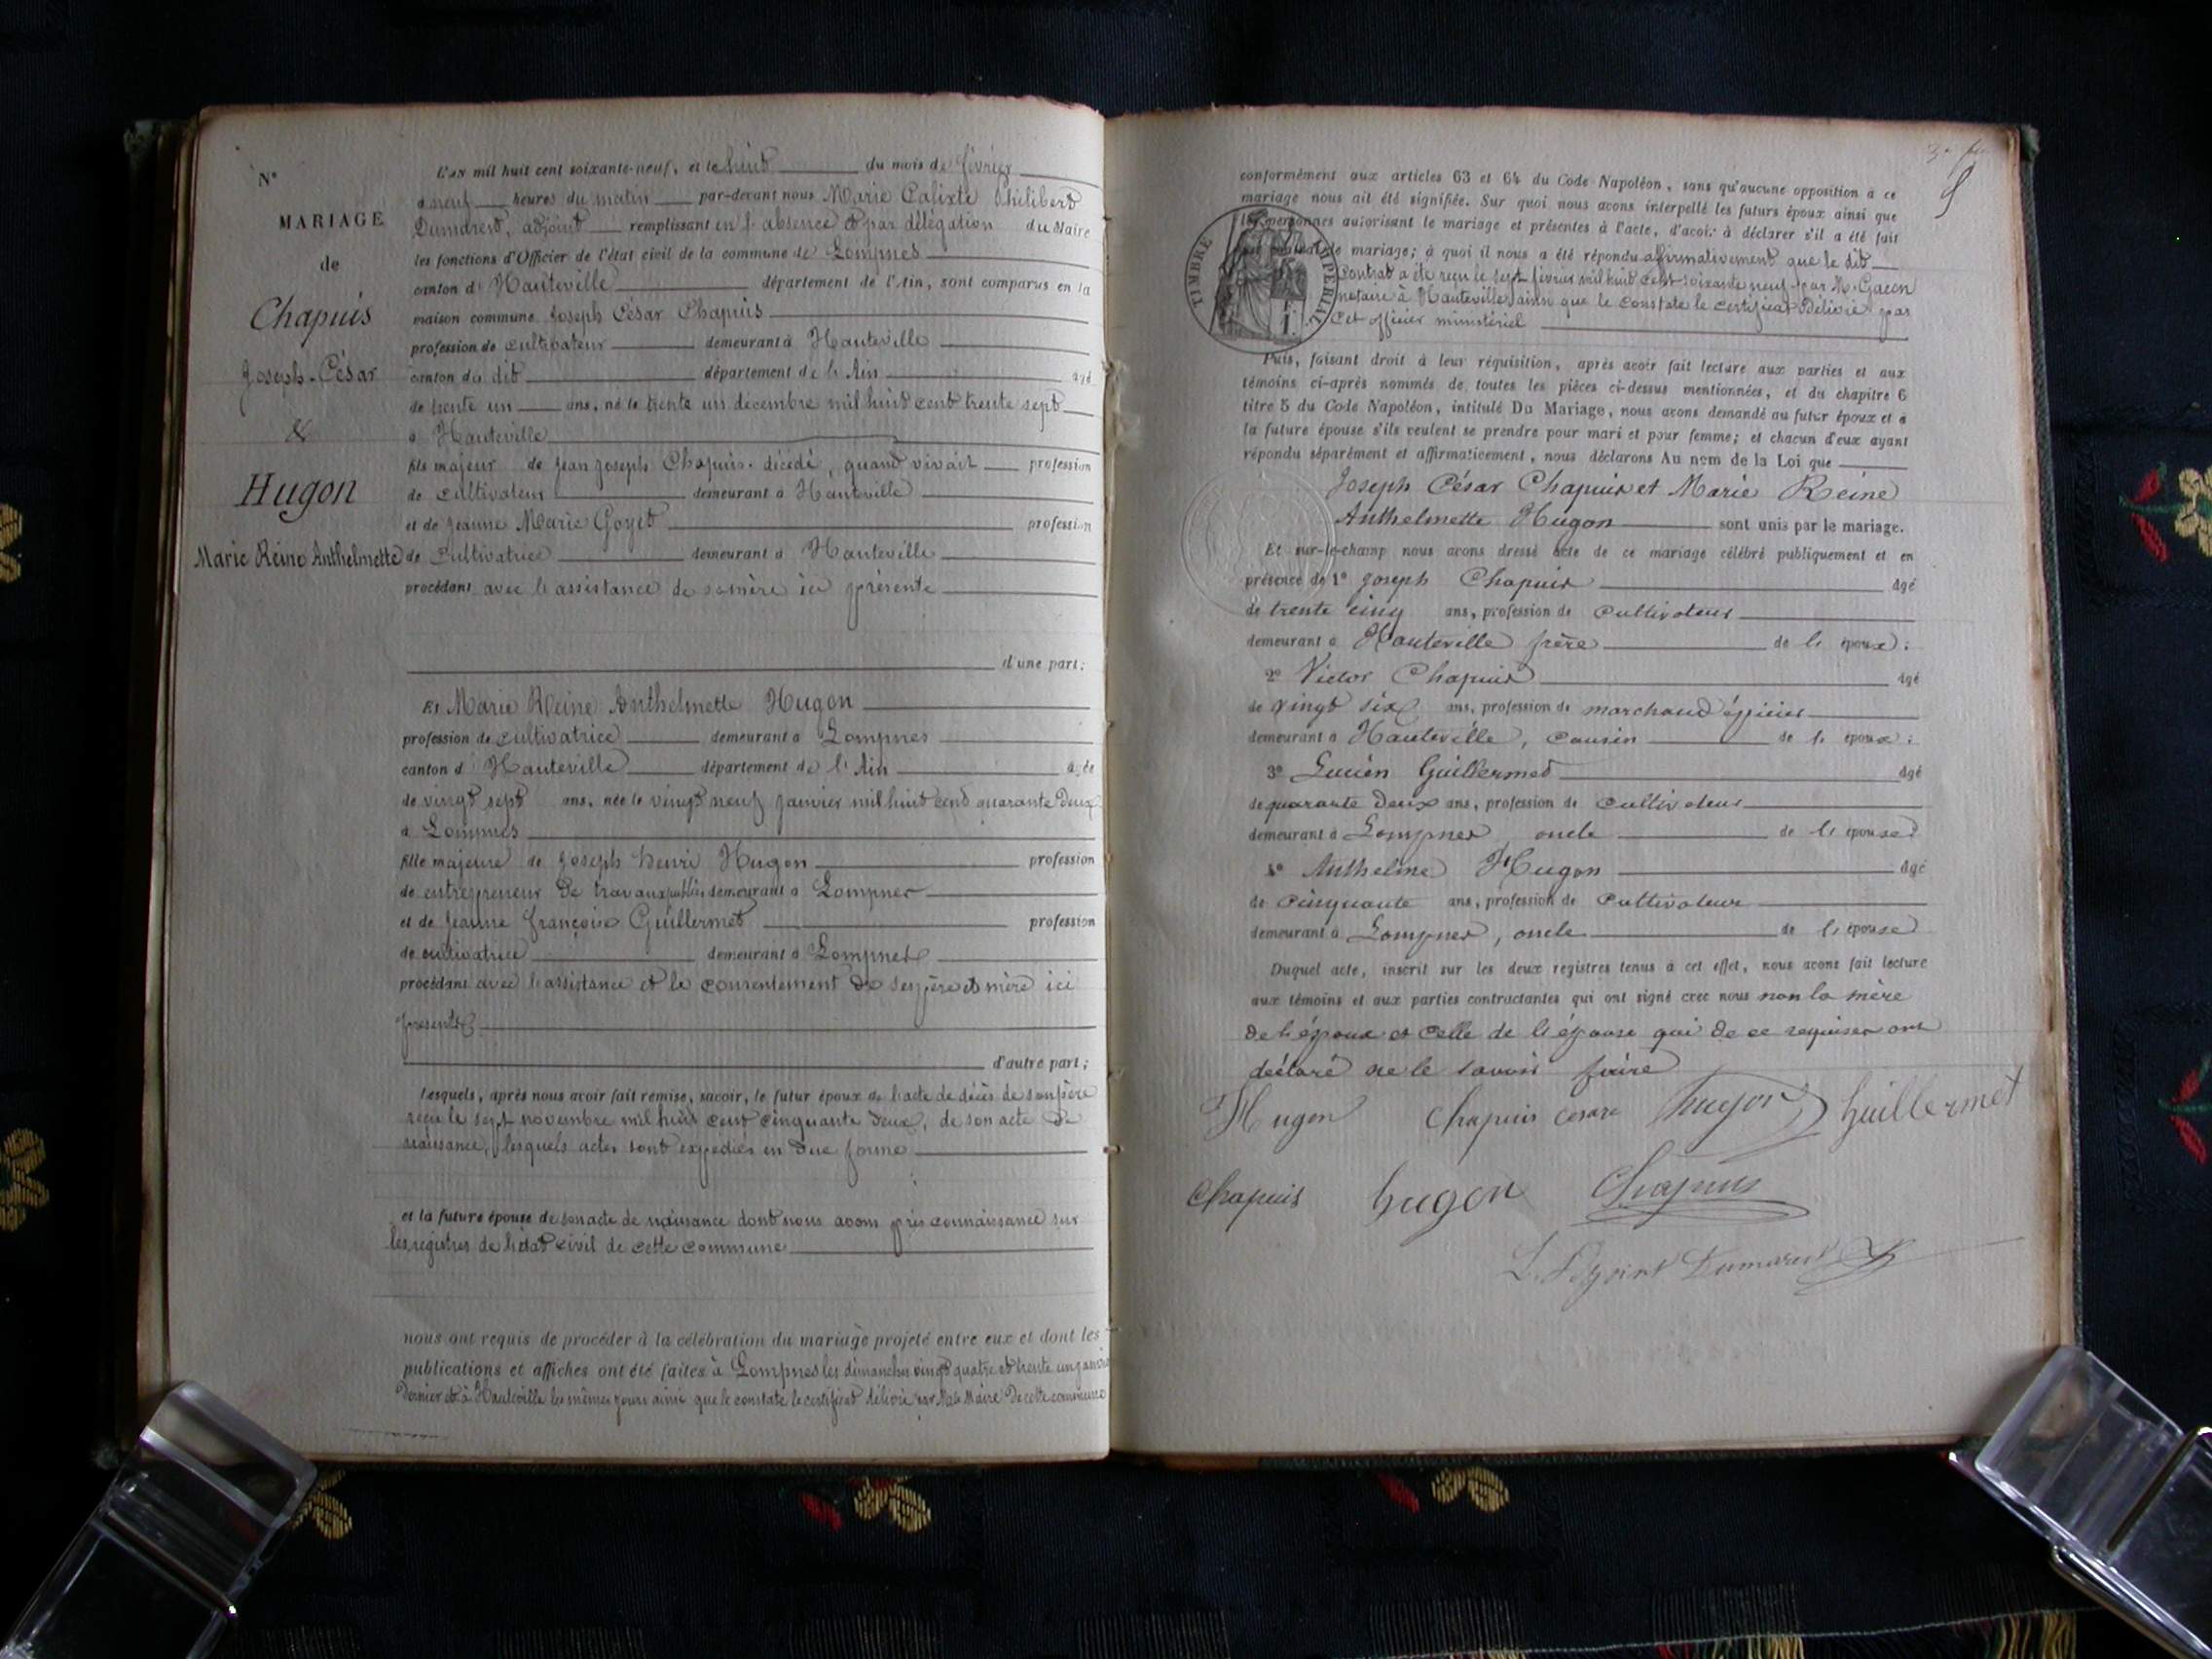 N°
MARIAGE
de
Chapuis
Joseph-César
&
Hugon
Marie Reine Anthelmette
L'an mil huit cent soixante-neuf, et le huit du mois de février
à neuf heures du matin par-devant nous Marie Calixte Philibert
Dumarest, adjoint remplissant en l'absence et par délégation du Maire
les fonctions d'Officier de l'état civil de la commune de Lompnes
canton d'Hauteville département de l'Ain, sont comparus en la
maison commune Joseph César Chapuis
profession de cultivateur demeurant à Hauteville
canton du dit département de l'Ain âgé
de trente un ans, né le trente un décembre mil huit cent trente sept
à Hauteville
fils majeur de Jean Joseph Chapuis décédé, quand vivait profession
de cultivateur demeurant à Hauteville
et de Jeanne Marie Goyet profession
de cultivatrice demeurant à Hauteville
procédant avec l'assistance de sa mère ici présente
d'une part;
Et Marie Reine Anthelmette Hugon
profession de cultivatrice demeurant à Lompnes
canton d'Hauteville département de l'Ain âgée
de vingt sept ans, née le vingt neuf janvier mil huit cent quarante deux
à Lompnes
fille majeure de Joseph henri Hugon profession
de entrepreneur de travaux publics demeurant à Lompnes
et de Jeanne françoise Guillermet profession
de cultivatrice demeurant à Lompnes
procédant avec l'assistance et le consentement de ses père et mère ici
présents
d'autre part;
Lesquels, après nous avoir fait remise, savoir, le futur époux de l'acte de décès de son père
reçu le sept novembre mil huit cent cinquante deux, de son acte de
naissance, lesquels actes sont expédiés en due forme
et la future épouse de son acte de naissance dont nous avons pris connaissance sur
les registres de l'état civil de cette commune
nous ont requis de procéder à la célébration du mariage projeté entre eux et dont les
publications et affiches ont été faites à Lompnes les dimanches vingt quatre et trente un janvier
dernier et à Hauteville les mêmes jours ainsi que le constate le certificat délivré par M. le Maire de cette commune
conformément aux articles 63 et 64 du Code Napoléon, sans qu'aucune opposition à ce
mariage nous ait été signifiée. Sur quoi nous avons interpellé les futurs époux ainsi que
les personnes autorisant le mariage et présentes à l'acte, d'avoir à déclarer s'il a été fait
de mariage; à quoi il nous a été répondu affirmativement que le dit
Contrat a été reçu le sept février mil huit cent soixante neuf par M. Gacon
notaire à Hauteville ainsi que le constate le certificat Délivré par
Cet officier ministériel
TIMBRE IMPÉRIAL
Puis, faisant droit à leur réquisition, après avoir fait lecture aux parties et aux
témoins ci-après nommés de toutes les pièces ci-dessus mentionnées, et du chapitre 6
titre 5 du Code Napoléon, intitulé Du Mariage, nous avons demandé au futur époux et à
la future épouse s'ils veulent se prendre pour mari et pour femme; et chacun d'eux ayant
répondu séparément et affirmativement, nous déclarons Au nom de la Loi que
Joseph César Chapuis et Marie Reine
Anthelmette Hugon sont unis par le mariage.
Et sur-le-champ nous avons dressé acte de ce mariage célébré publiquement et en
présence de 1° Joseph Chapuis âgé
de trente cinq ans, profession de cultivateur
demeurant à Hauteville frère de l'époux;
2° Victor Chapuis âgé
de vingt six ans, profession de marchand épicier
demeurant à Hauteville, cousin de l'époux;
3° Lucien Guillermet âgé
de quarante deux ans, profession de cultivateur
demeurant à Lompnes oncle de l'épouse
4° Anthelme Hugon âgé
de cinquante ans, profession de cultivateur
demeurant à Lompnes, oncle de l'épouse
Duquel acte, inscrit sur les deux registres tenus à cet effet, nous avons fait lecture
aux témoins et aux parties contractantes qui ont signé avec nous non la mère
de l'époux et celle de l'épouse qui de ce requises ont
déclaré ne le savoir faire
Hugon Chapuis Cesare hugon Guillermet
Chapuis hugon Chapuis
L'Adjoint Dumarest